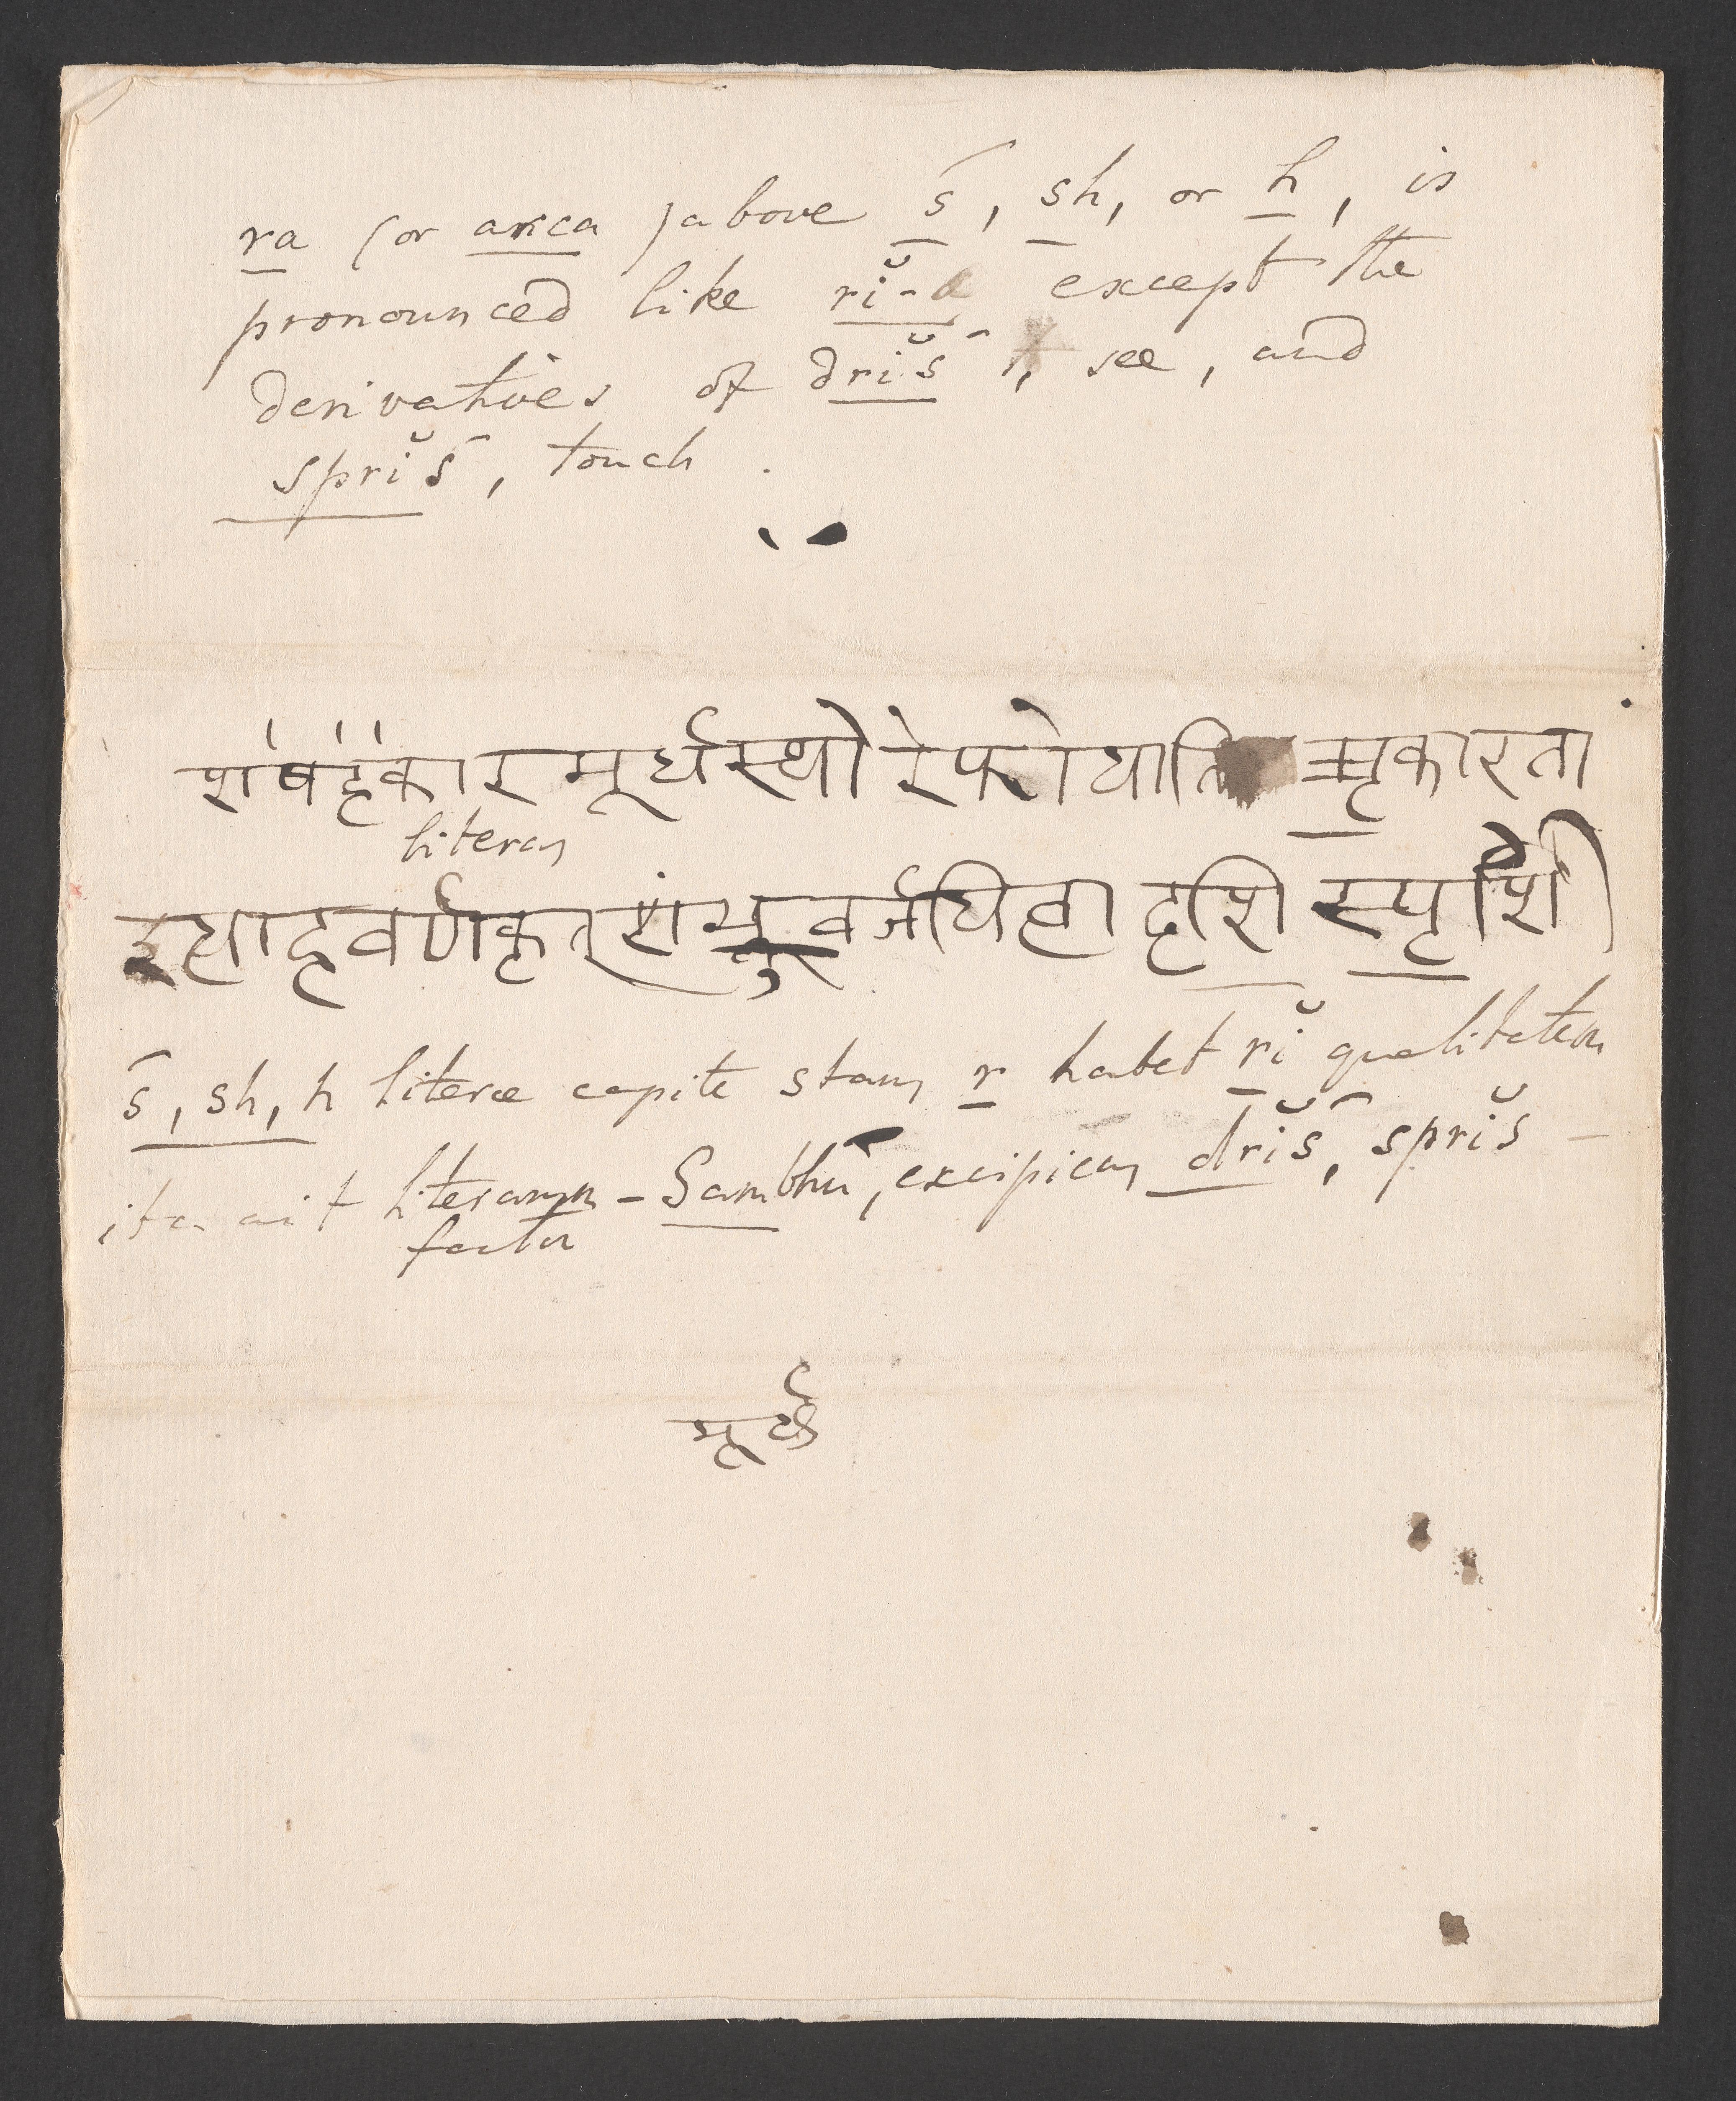 ra (or arca) above ś, sh, or h, is
pronounced like rĭ-a except the
derivatives of drĭś, see, and
sprĭś, touch.
शंषंहंकारमूर्धस्थो रेफो याति ऋकारतां
literas
इत्याह वर्णकृत् शंभु वर्जयित्वा दृशि स्पृशि
ś, sh, h literæ capite stans r habet rĭ qualitatem
ita ait literarum - Sambhu, excipiens drĭś, sprĭś -
factor
मूर्द्ध